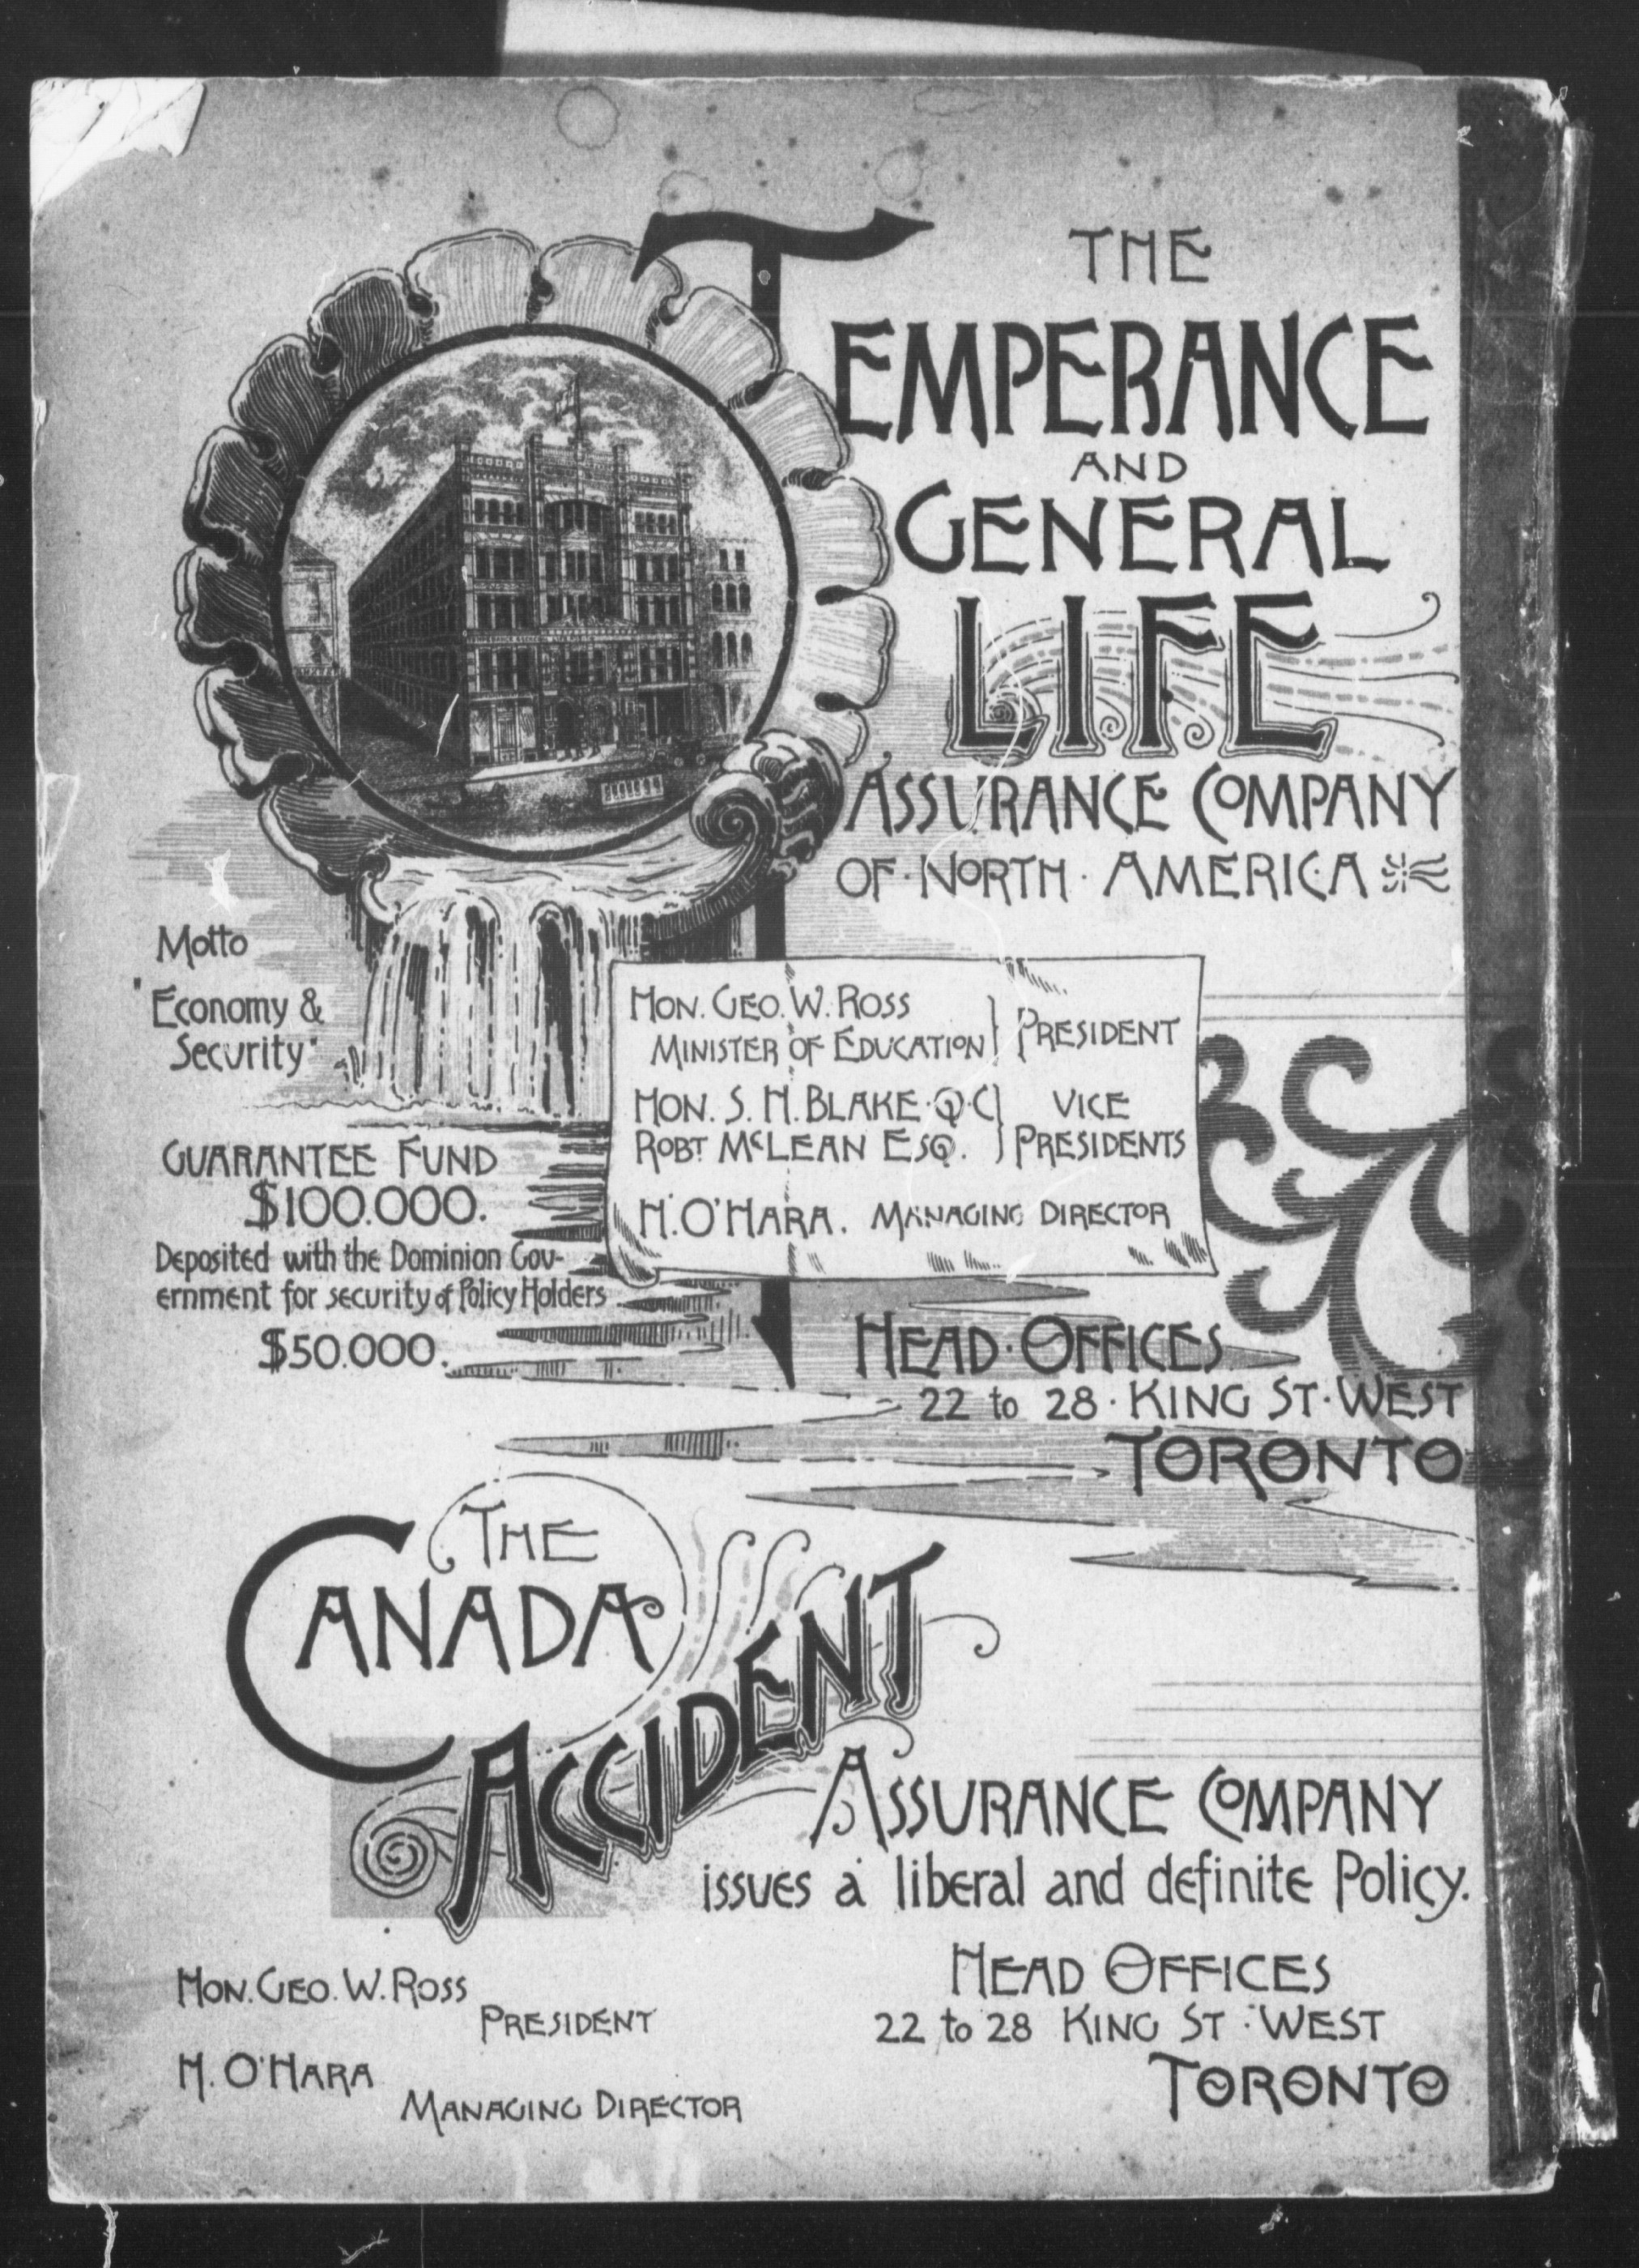 THE
TEMPERANCE
AND
GENERAL
LIFE
ASSURANCE COMPANY
OF · NORTH · AMERICA
Motto
"Economy &
Security"
HON. GEO. W. ROSS
MINISTER OF EDUCATION } PRESIDENT
HON. S. H. BLAKE · Q · C } VICE
ROBT McLEAN ESQ. } PRESIDENTS
H. O'HARA. MANAGING DIRECTOR
GUARANTEE FUND
$100.000.
Deposited with the Dominion Gov-
ernment for security of Policy Holders
$50.000.
HEAD · OFFICES
22 to 28 · KING ST · WEST
TORONTO
THE
CANADA
ACCIDENT
ASSURANCE COMPANY
issues a liberal and definite Policy.
HON. GEO. W. ROSS
PRESIDENT
H. O'HARA
MANAGING DIRECTOR
HEAD OFFICES
22 to 28 KING ST · WEST
TORONTO